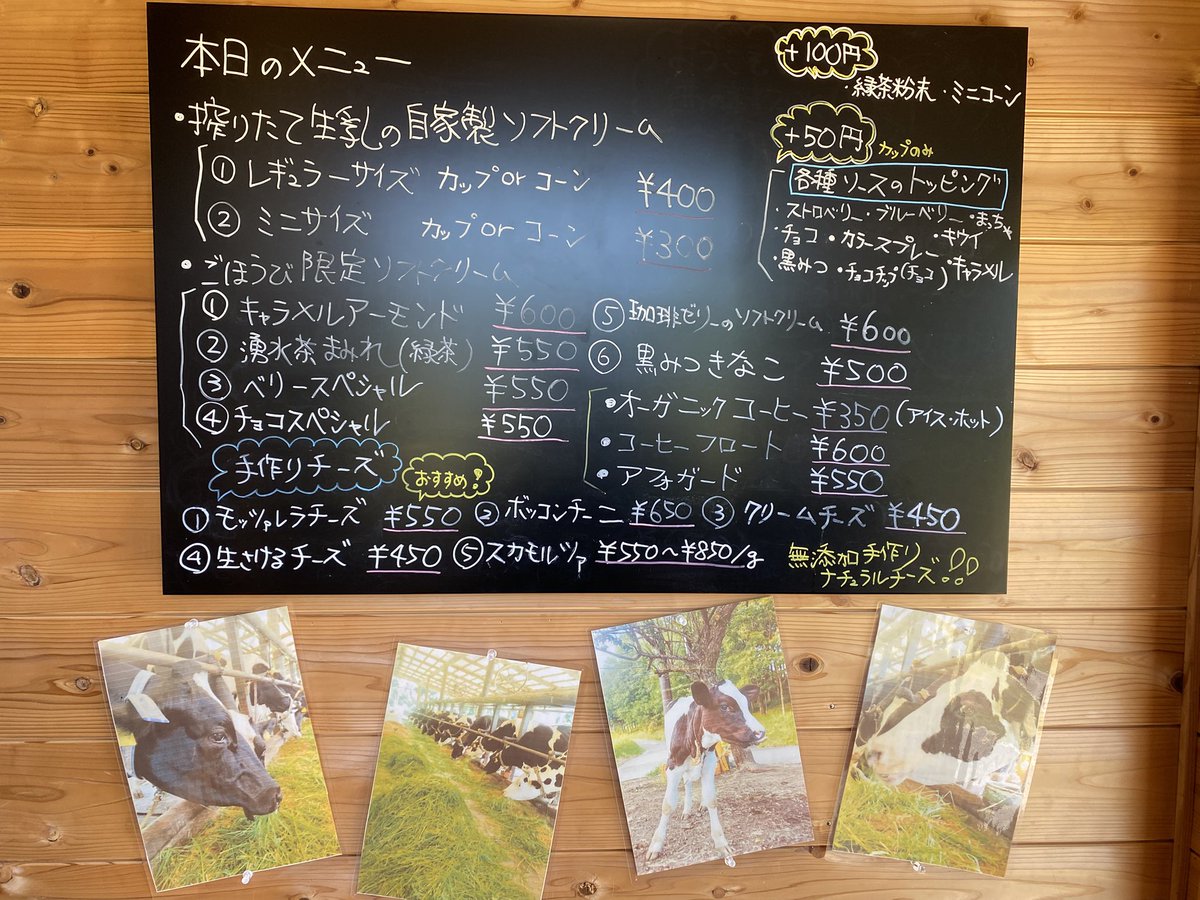 本日のメニュー
・搾りたて生乳の自家製ソフトクリーム
① レギュラーサイズ カップorコーン ¥400
② ミニサイズ カップorコーン ¥300
・ごほうび限定ソフトクリーム
① キャラメルアーモンド ¥600
② 湧水茶まみれ(緑茶) ¥550
③ ベリースペシャル ¥550
④ チョコスペシャル ¥550
⑤ 珈琲ゼリーのソフトクリーム ¥600
⑥ 黒みつきなこ ¥500
・オーガニックコーヒー ¥350 (アイス・ホット)
・コーヒーフロート ¥600
・アフォガード ¥550
+100円
・緑茶粉末・ミニコーン
+50円 カップのみ
各種ソースのトッピング
・ストロベリー・ブルーベリー・まっちゃ
・チョコ・カラースプレー・キウイ
・黒みつ・チョコチップ(チョコ)・キャラメル
手作りチーズ おすすめ!
① モッツァレラチーズ ¥550 ② ボッコンチーニ ¥650 ③ クリームチーズ ¥450
④ 生さけるチーズ ¥450 ⑤ スカモルツァ ¥550~¥850/g
無添加手作り
ナチュラルチーズ!!